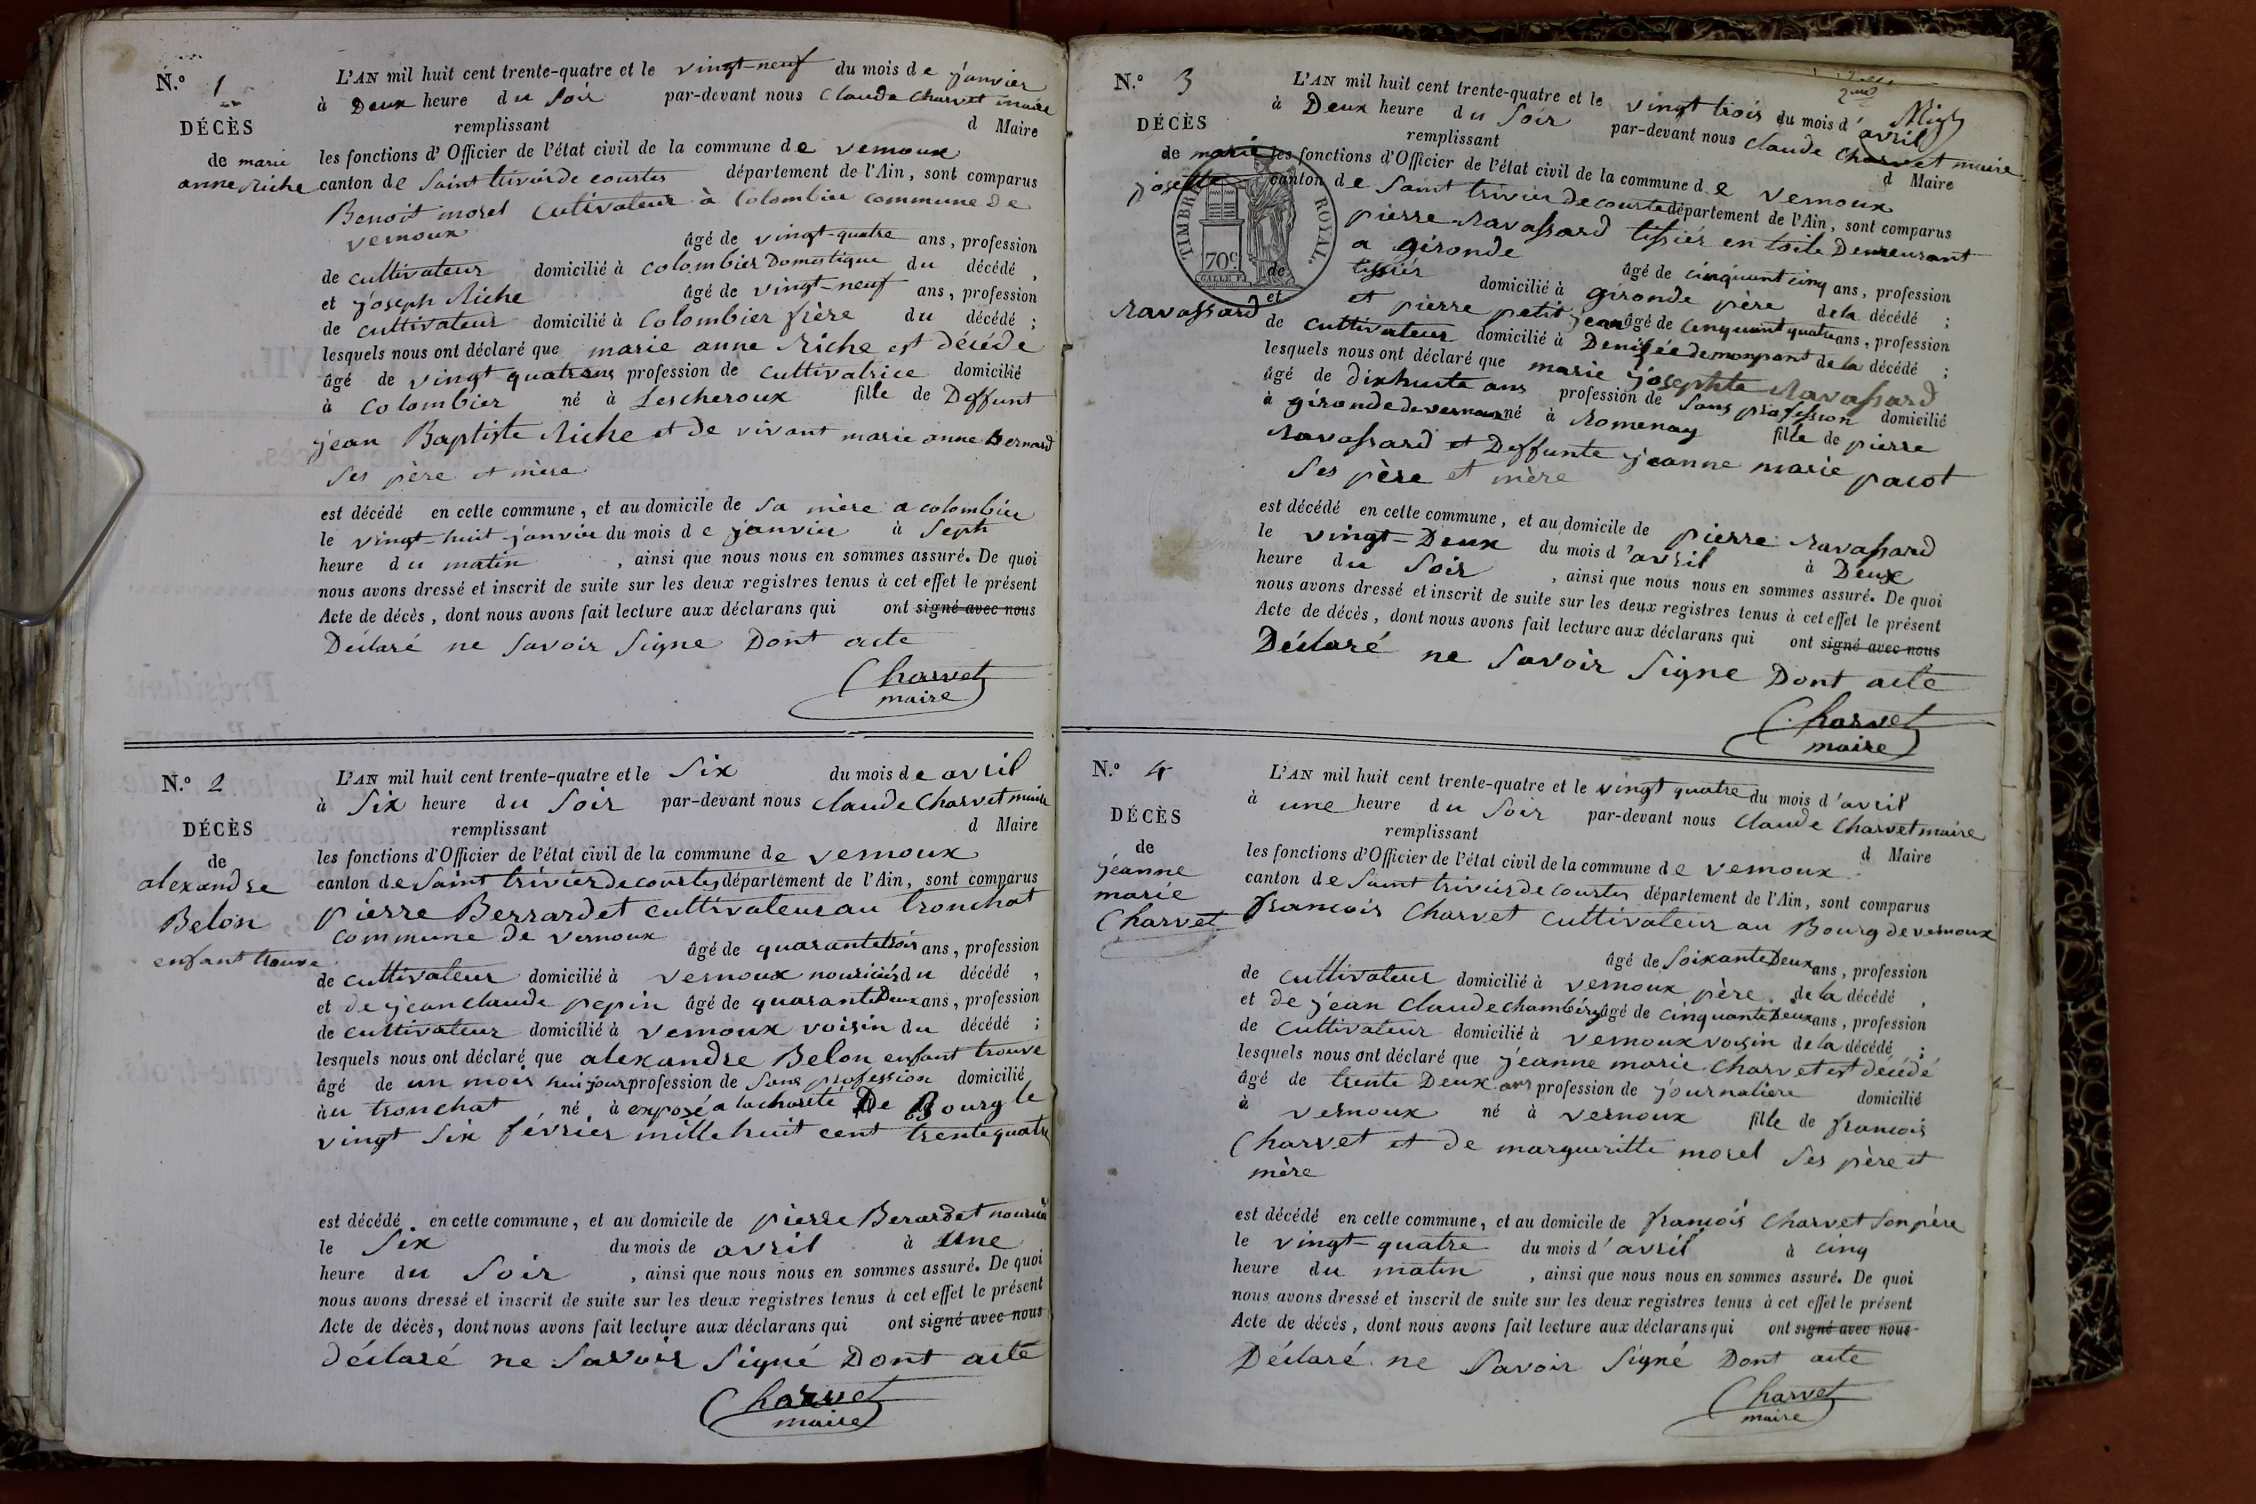 N.o 1
DÉCÈS
de marie
anne Riche
L'AN mil huit cent trente-quatre et le vingt-neuf du mois de janvier
à Deux heure du soir par-devant nous Claude Charvet maire
remplissant d Maire
les fonctions d'Officier de l'état civil de la commune de vernoux
canton de Saint trivier de courtes département de l'Ain, sont comparus
Benoit morel Cutivateur à Colombier commune de
vernoux âgé de vingt-quatre ans, profession
de cultivateur domicilié à colombier Domestique du décédé,
et joseph Riche âgé de vingt-neuf ans, profession
de cultivateur domicilié à Colombier frère du décédé;
lesquels nous ont déclaré que marie anne Riche est décédé
âgé de vingt quatre ans profession de cultivatrice domicilié
à Colombier né à Lescheroux fille de Deffunt
jean Baptiste Riche et de vivant marie anne Bernard
Ses père et mère
est décédé en cette commune, et au domicile de sa mère a colombier
le vingt-huit janvier du mois de janvier à Seph
heure du matin, ainsi que nous nous en sommes assuré. De quoi
nous avons dressé et inscrit de suite sur les deux registres tenus à cet effet le présent
Acte de décès, dont nous avons fait lecture aux déclarans qui ont signé avec nous
Déclaré ne Savoir Signe Dont acte
Charvet
maire
N.o 2
DÉCÈS
de
alexandre
Belon
enfant trouve
L'AN mil huit cent trente-quatre et le Six du mois de avril
à Six heure du Soir par-devant nous claude Charvet maire
remplissant d Maire
les fonctions d'Officier de l'état civil de la commune de vernoux
canton de Saint trivier de courtes département de l'Ain, sont comparus
pierre Berrardet cultivateur au tronchat
commune de vernoux âgé de quarante trois ans, profession
de cultivateur domicilié à vernoux nouricier du décédé,
et de jean claude pepin âgé de quarante Deux ans, profession
de cultivateur domicilié à vernoux voisin du décédé;
lesquels nous ont déclaré que alexandre Belon enfant trouve
âgé de un mois huit jour profession de Sans profession domicilié
à au tronchat né à exposé a la charité De Bourg le
vingt six février mille huit cent trente quatre
est décédé en cette commune, et au domicile de pierre Berardet nouricier
le Six du mois de avril à une
heure du Soir, ainsi que nous nous en sommes assuré. De quoi
nous avons dressé et inscrit de suite sur les deux registres tenus à cet effet le présent
Acte de décès, dont nous avons fait lecture aux déclarans qui ont signé avec nous
déclaré ne Savoir Signé Dont acte
Charvet
maire
2me
N.o 3
DÉCÈS
de marie
josephte
TIMBRE ROYAL
70c
de
et
Ravassard
L'AN mil huit cent trente-quatre et le vingt trois du mois d'avril
à Deux heure du Soir par-devant nous claude Charvet maire
remplissant d Maire
les fonctions d'Officier de l'état civil de la commune de vernoux
canton de Saint trivier de courte département de l'Ain, sont comparus
pierre Ravassard tissiér en toile Demeurant
a gironde âgé de cinquant cinq ans, profession
tissiér domicilié à gironde père de la décédé;
et pierre petit jean âgé de cinquant quatre ans, profession
de cultivateur domicilié à Denisée de monpont de la décédé;
lesquels nous ont déclaré que marie josephte Ravassard
âgé de dixhuite ans profession de Sans profession domicilié
à gironde de vernoux né à Romenay fille de pierre
Ravassard et Deffunte jeanne marie pacot
Ses père et mère
est décédé en cette commune, et au domicile de pierre Ravassard
le vingt-Deux du mois d'avril à Deux
heure du Soir, ainsi que nous nous en sommes assuré. De quoi
nous avons dressé et inscrit de suite sur les deux registres tenus à cet effet le présent
Acte de décès, dont nous avons fait lecture aux déclarans qui ont signé avec nous
Déclaré ne Savoir Signe Dont acte
Charvet
maire
N.o 4
DÉCÈS
de
jeanne
marie
Charvet
L'AN mil huit cent trente-quatre et le vingt quatre du mois d'avril
à une heure du Soir par-devant nous Claude Charvet maire
remplissant d Maire
les fonctions d'Officier de l'état civil de la commune de vernoux
canton de Saint trivier de courtes département de l'Ain, sont comparus
francois Charvet cultivateur au Bourg de vernoux
âgé de Soixante Deux ans, profession
de cultivateur domicilié à vernoux père de la décédé,
et de jean claude chambéry âgé de cinquante Deux ans, profession
de cultivateur domicilié à vernoux voisin de la décédé;
lesquels nous ont déclaré que jeanne marie Charvet est décédé
âgé de trente Deux ans profession de journaliere domicilié
à vernoux né à vernoux fille de francois
Charvet et de margueritte morel Ses père et
mère
est décédé en cette commune, et au domicile de francois Charvet Son père
le vingt-quatre du mois d'avril à cinq
heure du matin, ainsi que nous nous en sommes assuré. De quoi
nous avons dressé et inscrit de suite sur les deux registres tenus à cet effet le présent
Acte de décès, dont nous avons fait lecture aux déclarans qui ont signé avec nous
Déclaré ne Savoir Signé Dont acte
Charvet
maire